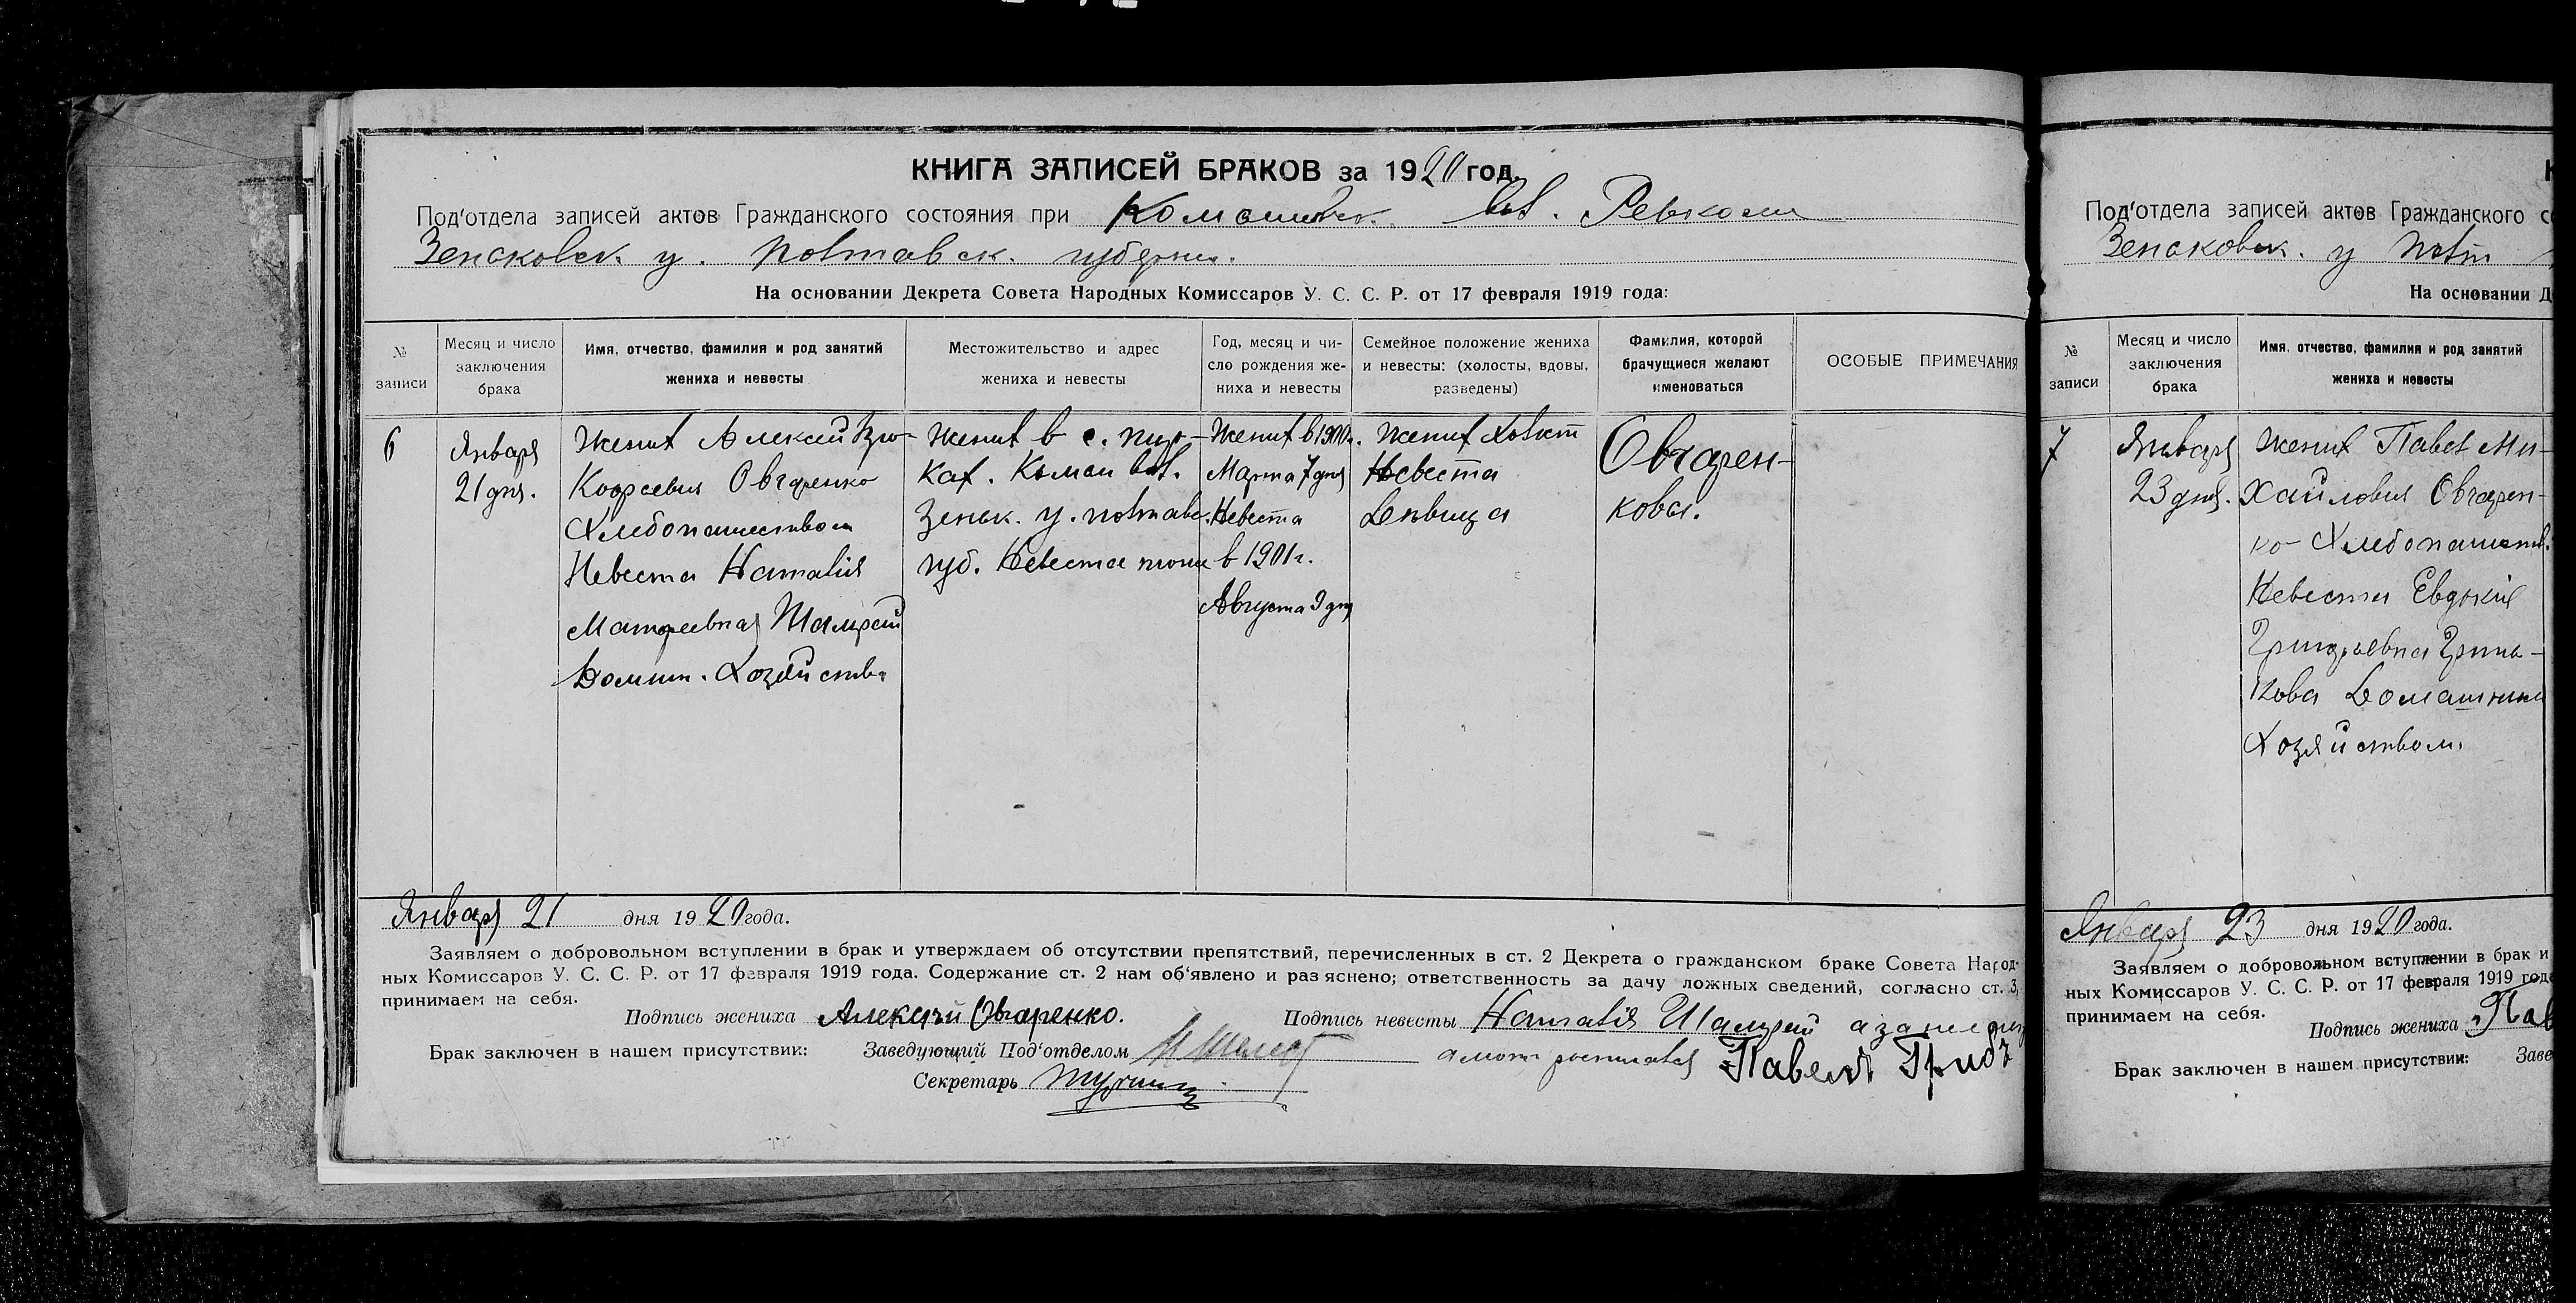 КНИГА ЗАПИСЕЙ БРАКОВ за 1920 год.
Под'отдела записей актов Гражданского состояния при Комышовск. Вол. Ревкоме
Зеньковск. у. Полтавск. губернии.
На основании Декрета Совета Народных Комиссаров У. С. С. Р. от 17 февраля 1919 года:
№ записи
Месяц и число заключения брака
Имя, отчество, фамилия и род занятий жениха и невесты
Местожительство и адрес жениха и невесты
Год, месяц и число рождения жениха и невесты
Семейное положение жениха и невесты: (холосты, вдовы, разведены)
Фамилия, которой брачущиеся желают именоваться
ОСОБЫЕ ПРИМЕЧАНИЯ
6
Января
21 дня.
Жених Алексей
Овчаренко
Хлебопашеством
Невеста Наталия
Матфеевна Шамрай
Хозяйств.
Жених в с.
вол.
Зеньк. у. полтавс.
губ. Невеста тоже
Жених в 1900 г.
Марта 7 дня
Невеста
в 1901 г.
Августа 9 дня
Жених Холост
Невеста
Девица
Овчарен-
ковы.
Января 21 дня 1920 года.
Заявляем о добровольном вступлении в брак и утверждаем об отсутствии препятствий, перечисленных в ст. 2 Декрета о гражданском браке Совета Народ-
ных Комиссаров У. С. С. Р. от 17 февраля 1919 года. Содержание ст. 2 нам об'явлено и раз яснено; ответственность за дачу ложных сведений, согласно ст. 3,
принимаем на себя.
Подпись жениха Алексѣй Овчаренко.
Подпись невесты Наталия Шамрай а за неграм
Брак заключен в нашем присутствии: Заведующий Под'отделом
росписался Павелъ
Секретарь
Под'отдела записей актов Гражданского со
Зеньковск. у Полт
На основании Д
№ записи
Месяц и число заключения брака
Имя, отчество, фамилия и род занятий жениха и невесты
7
Января
23 дня.
Жених Павел Ми-
хайлович Овчарен-
ко Хлебопашеств.
Невеста Евдокия
Григорьевна Гринь-
кова Домашним
Хозяйством.
Января 23 дня 1920 года.
Заявляем о добровольном вступлении в брак и
ных Комиссаров У. С. С. Р. от 17 февраля 1919 года
принимаем на себя.
Подпись жениха Пав
Брак заключен в нашем присутствии: Заве